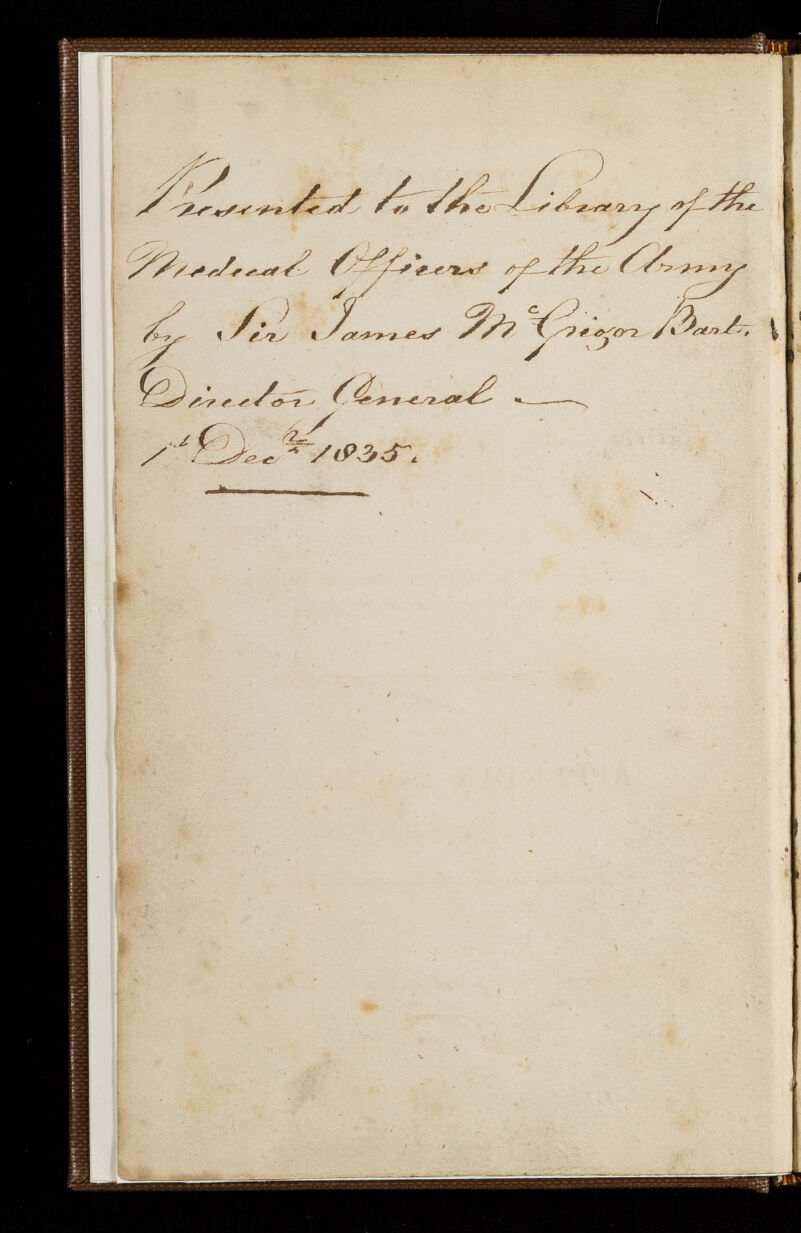 Presented to the Library of the
Medical Officers of the Army
by Sir James McGrigor Bart.
Director General —
1st Decr 1835.